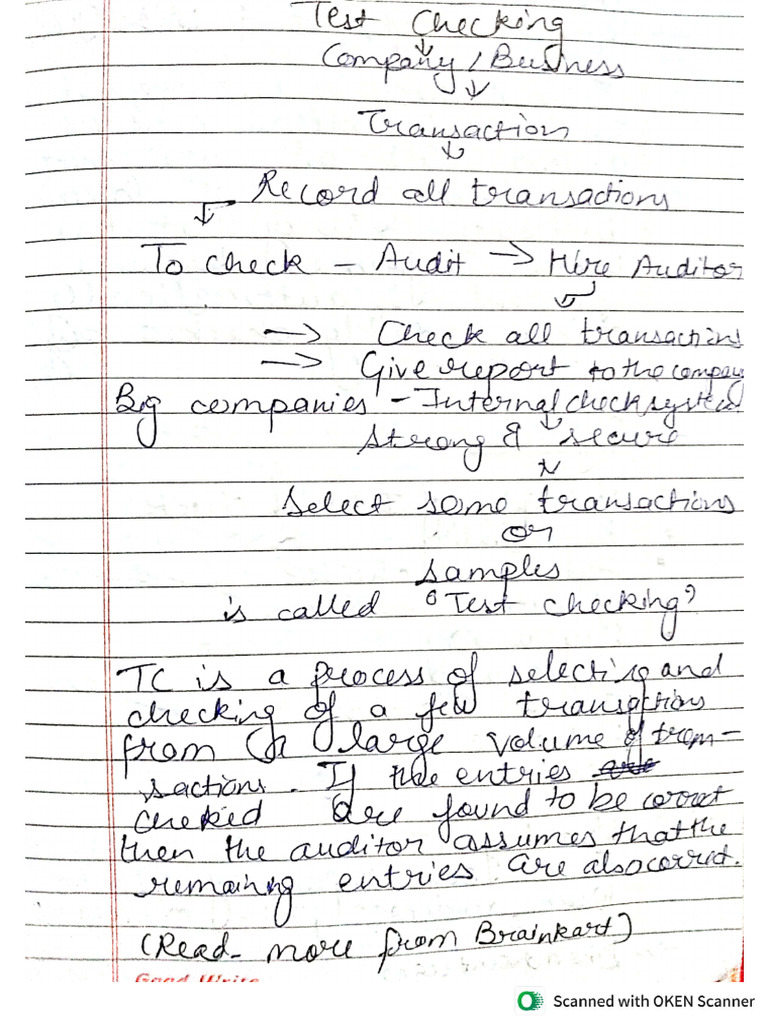 Test Checking
↓
Company / Business
↓
Transaction
↓
Record all transactions
↓
To check - Audit → Hire Auditor
↓
→ Check all transactions
→ Give report to the company
Big companies - Internal check system
↓
Strong & secure
↓
Select some transactions
or
samples
is called 'Test checking'
TC is a process of selecting and
checking of a few transactions
from a large volume of tran-
sactions. If the entries
checked are found to be correct
then the auditor assumes that the
remaining entries are also correct.
(Read more from Brainkart)
Good Write
Scanned with OKEN Scanner